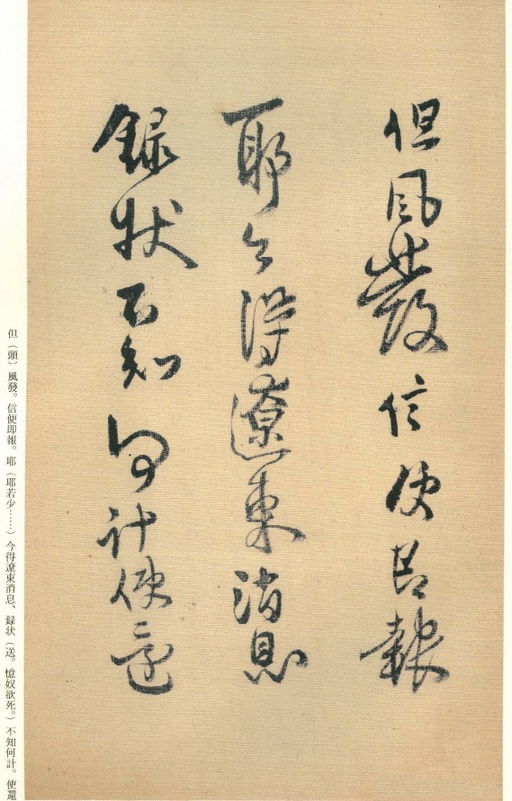 但風發信使召報
耶今得遼東消息
録状不知何計使還
但（頭）風發。信便即報。耶（耶若少……）今得遼東消息、録状（送。憶奴欲死。）不知何計。使還